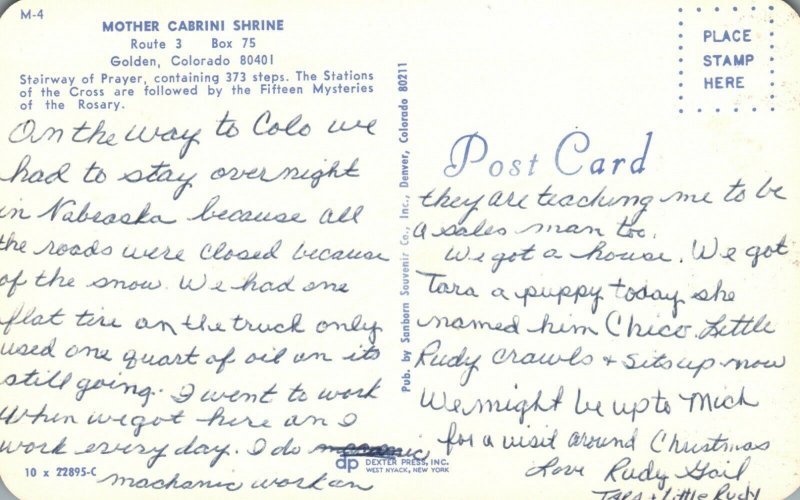 M-4
MOTHER CABRINI SHRINE
Route 3 Box 75
Golden, Colorado 80401
Stairway of Prayer, containing 373 steps. The Stations
of the Cross are followed by the Fifteen Mysteries
of the Rosary.
On the way to Colo we
had to stay over night
in Nabraska because all
the roads were closed because
of the snow. We had one
flat tire on the truck only
used one quart of oil on its
still going. I went to work
when we got here an I
work every day. I do
machanic work an
10 x 22895-C
Pub. by Sanborn Souvenir Co., Inc., Denver, Colorado 80211
dp DEXTER PRESS, INC.
WEST NYACK, NEW YORK
PLACE
STAMP
HERE
Post Card
they are teaching me to be
a sales man too.
We got a house. We got
Tara a puppy today she
named him Chico. Little
Rudy crawls + sits up now
We might be up to Mich
for a visit around Christmas
Love Rudy Gail
Tara + Little Rudy